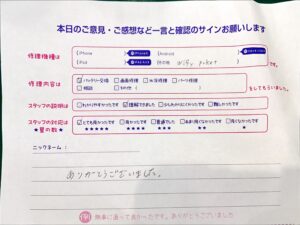 本日のご意見・ご感想など一言と確認のサインお願いします
修理機種は
(iPhone
(Android
(iPad
(その他 wifi poket )
修理内容は
☑バッテリー交換 □画面修理 □水没修理 □パーツ修理
□相談 □その他（ ）をしてもらいました。
スタッフの説明は
□わかりやすかった ☑理解できました □少しわかりにくかった □難しかった
スタッフの対応は
★星の数★
☑とても良かった □良かった □普通でした □あまり良くなかった □良くなかった
★★★★★ ★★★★ ★★★ ★★ ★
ニックネーム：
ありがとうございました。
無事に直って良かったです。ありがとうございました